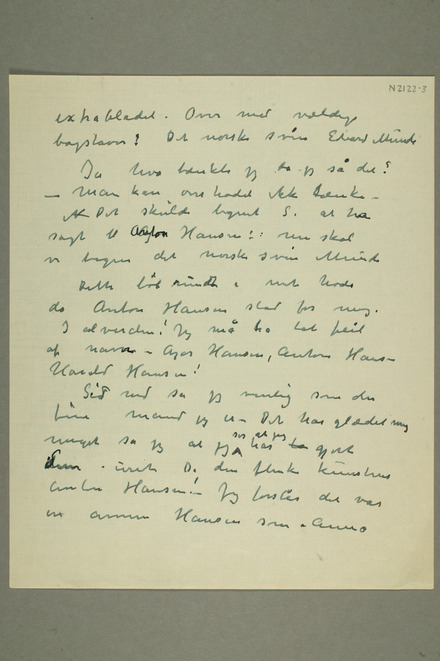 N2122-3
extrabladet. Over med vældige
bogstaver! Det norske svin Edvard Munch
Ja hva tænkte jeg da jeg så det?
– Man kan overhodet ikke tænke –
Det skulde begynt at ha
sagt til Anton Hansen!: nu skal
vi begynne det norske svin Munch
Dette løb rundt i mit hode
da Anton Hansen stod for mig.
I alverden! Jeg må ha tat feil
af navn – Ager Hansen, Anton Hansen
Harald Hansen!
Sid ned sa jeg venlig som den
fine mand jeg er – Det har glædet mig
meget sa jeg at jeg har gjort
Dem. De den flinke kunstner
Anton Hansen! – Jeg forstår det var
en annen Hansen som